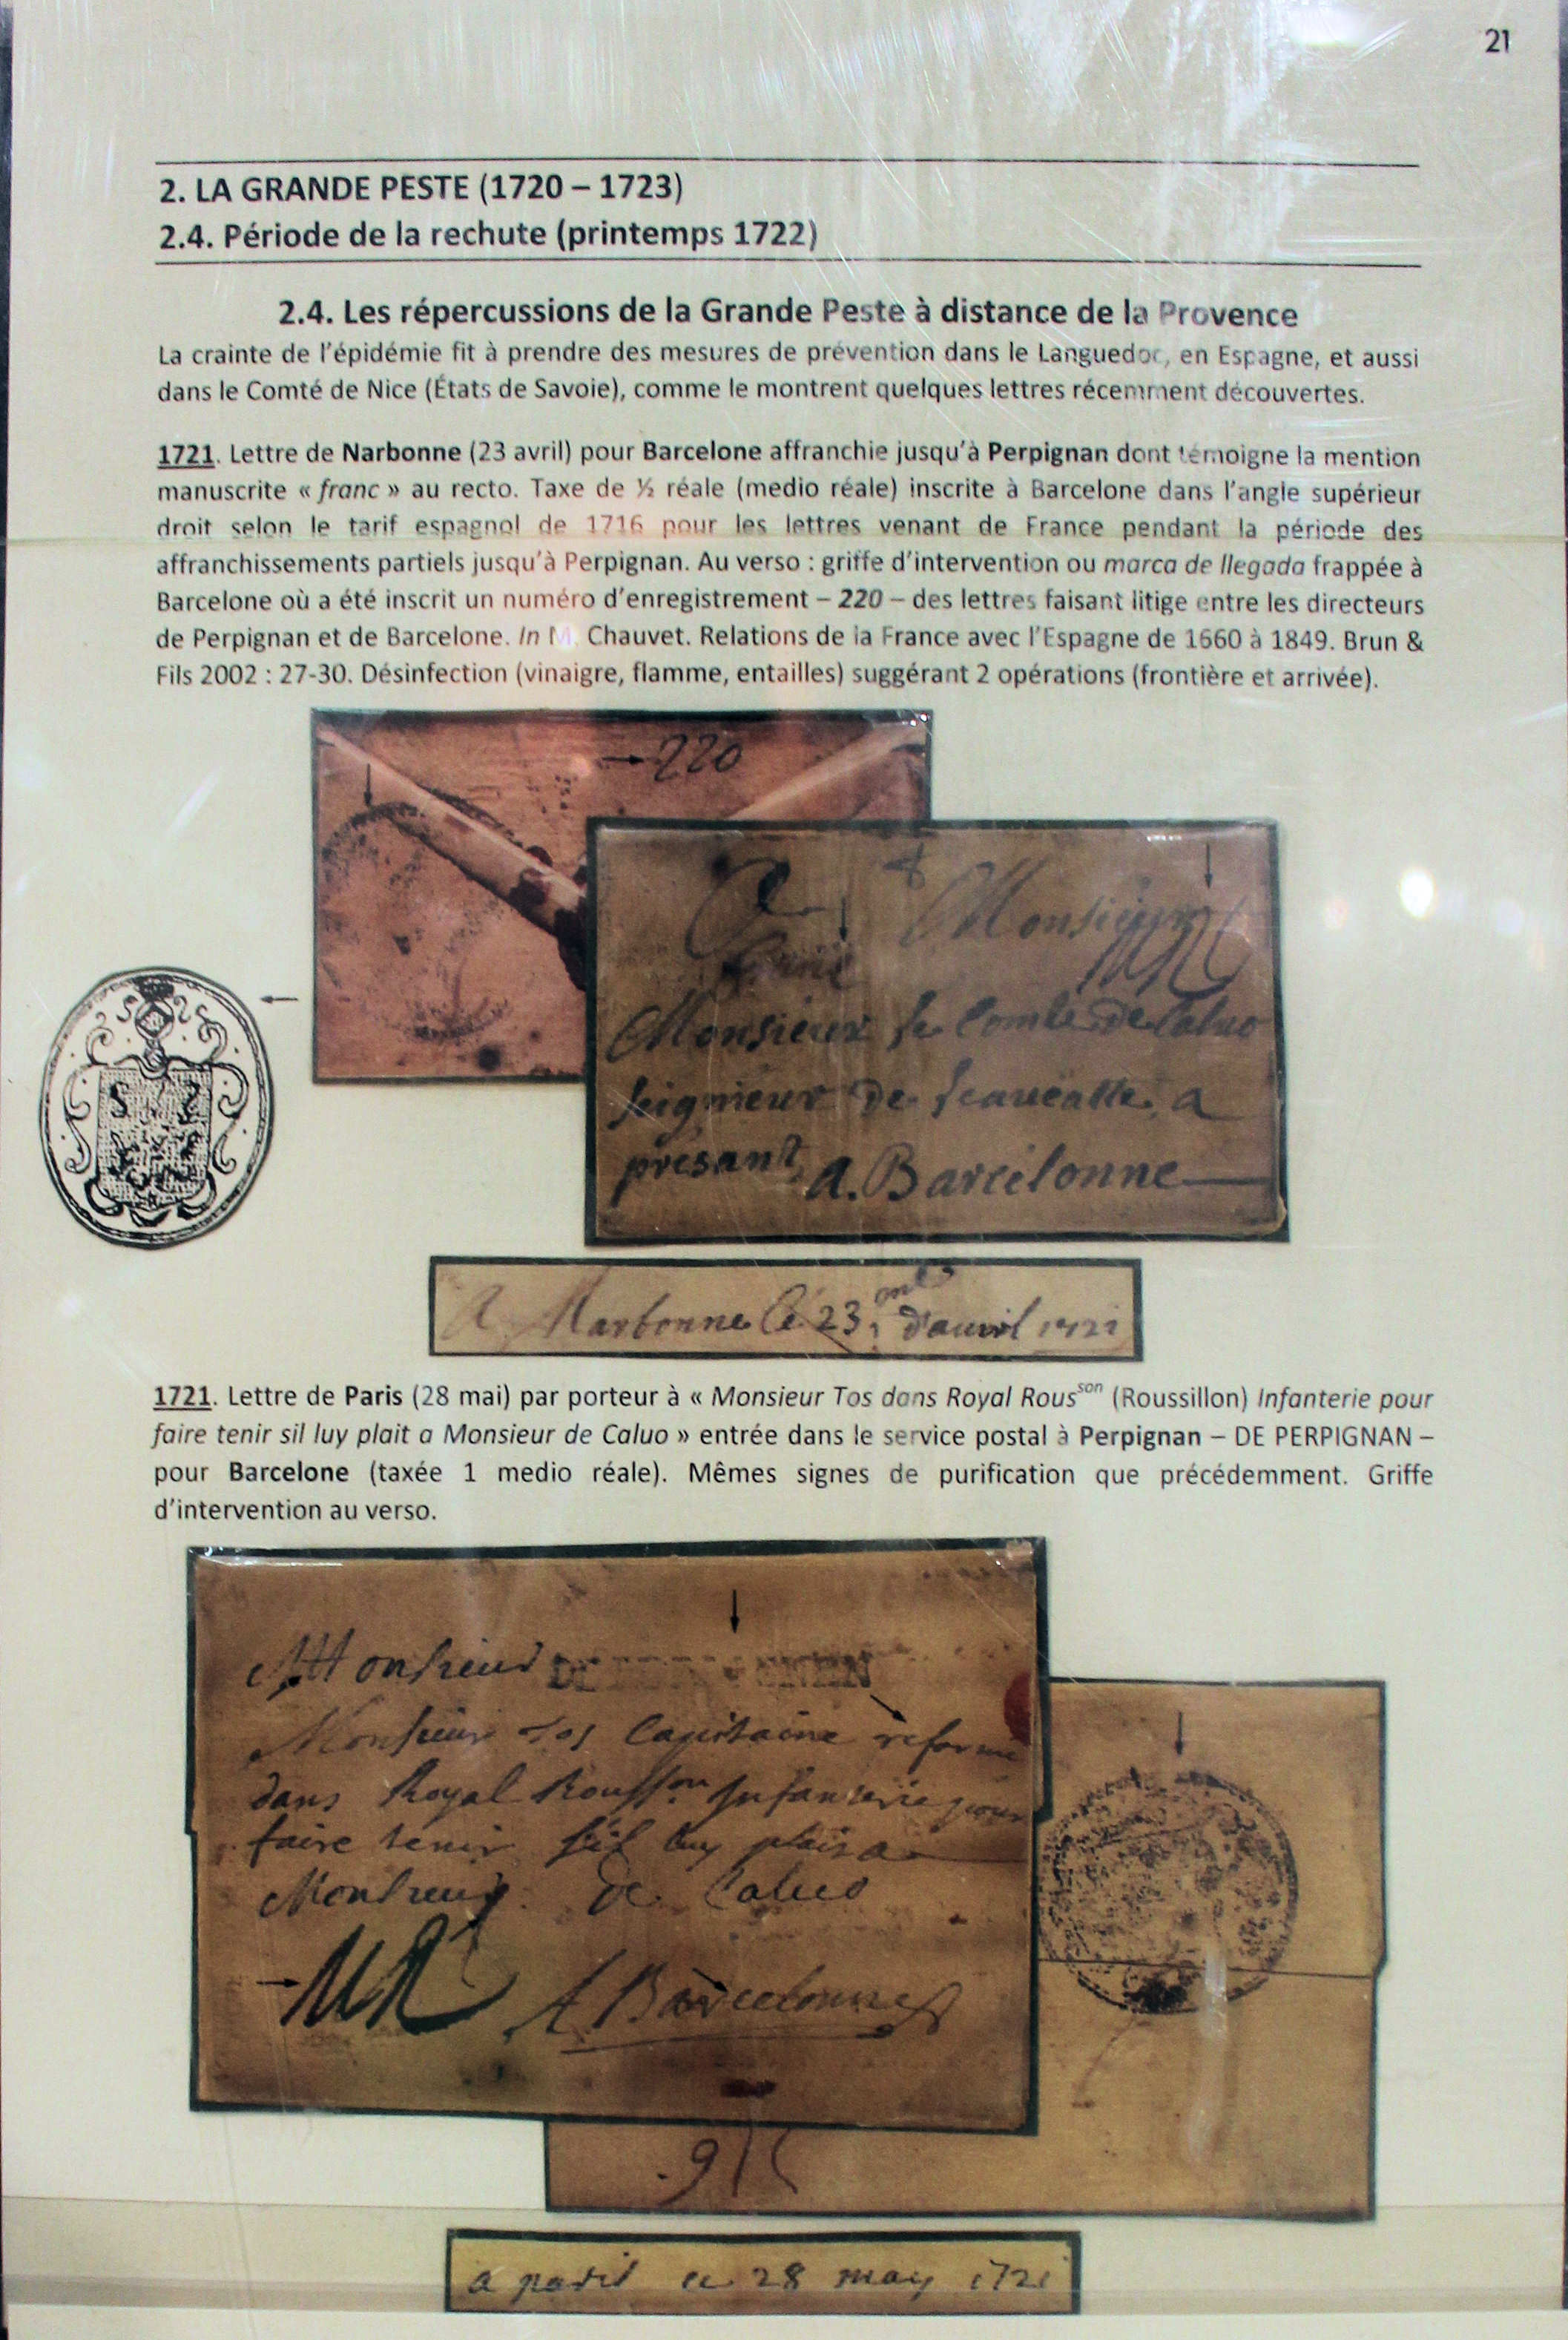 21
2. LA GRANDE PESTE (1720 – 1723)
2.4. Période de la rechute (printemps 1722)
2.4. Les répercussions de la Grande Peste à distance de la Provence
La crainte de l'épidémie fit à prendre des mesures de prévention dans le Languedoc, en Espagne, et aussi
dans le Comté de Nice (États de Savoie), comme le montrent quelques lettres récemment découvertes.
1721. Lettre de Narbonne (23 avril) pour Barcelone affranchie jusqu'à Perpignan dont témoigne la mention
manuscrite « franc » au recto. Taxe de ½ réale (medio réale) inscrite à Barcelone dans l'angle supérieur
droit selon le tarif espagnol de 1716 pour les lettres venant de France pendant la période des
affranchissements partiels jusqu'à Perpignan. Au verso : griffe d'intervention ou marca de llegada frappée à
Barcelone où a été inscrit un numéro d'enregistrement – 220 – des lettres faisant litige entre les directeurs
de Perpignan et de Barcelone. In M. Chauvet. Relations de la France avec l'Espagne de 1660 à 1849. Brun &
Fils 2002 : 27-30. Désinfection (vinaigre, flamme, entailles) suggérant 2 opérations (frontière et arrivée).
220
A Monsieur
Monsieur le Comte de Caluo
seigneur de a
presant a. Barcelonne
A Narbonne le 23 d'auvril 1721
1721. Lettre de Paris (28 mai) par porteur à « Monsieur Tos dans Royal Rousson (Roussillon) Infanterie pour
faire tenir sil luy plait a Monsieur de Caluo » entrée dans le service postal à Perpignan – DE PERPIGNAN –
pour Barcelone (taxée 1 medio réale). Mêmes signes de purification que précédemment. Griffe
d'intervention au verso.
Monsieur DE
Monsieur Tos Capitaine reformé
dans Royal Rousson Infanterie pour
faire tenir sil luy plais a
Monsieur de Caluo
A Barcelonne
a paris ce 28 may 1721